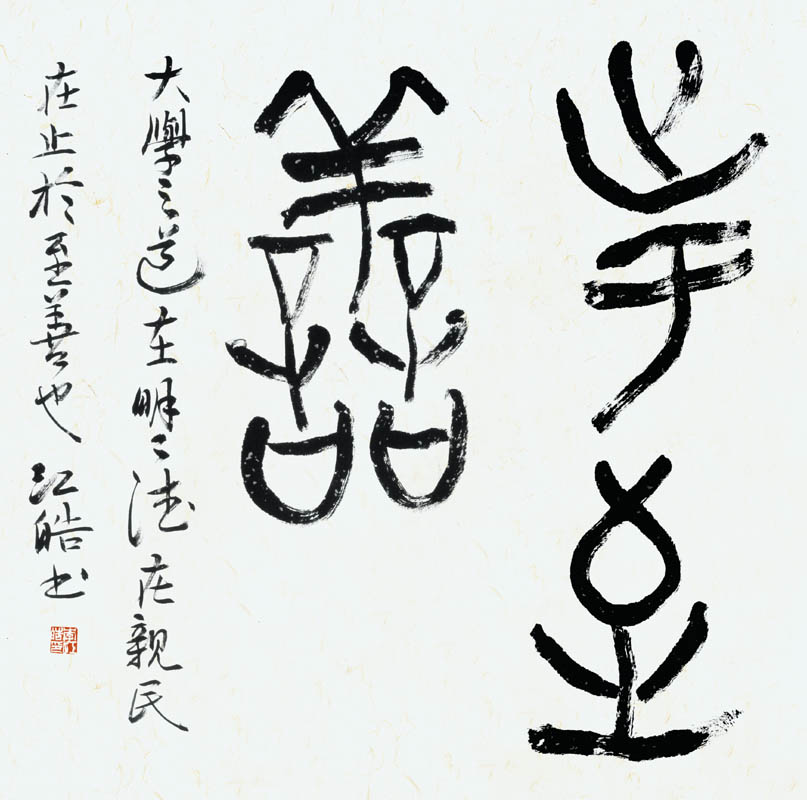 止于至
善
大學之道在明〻德在親民
在止於至善也 江皓书